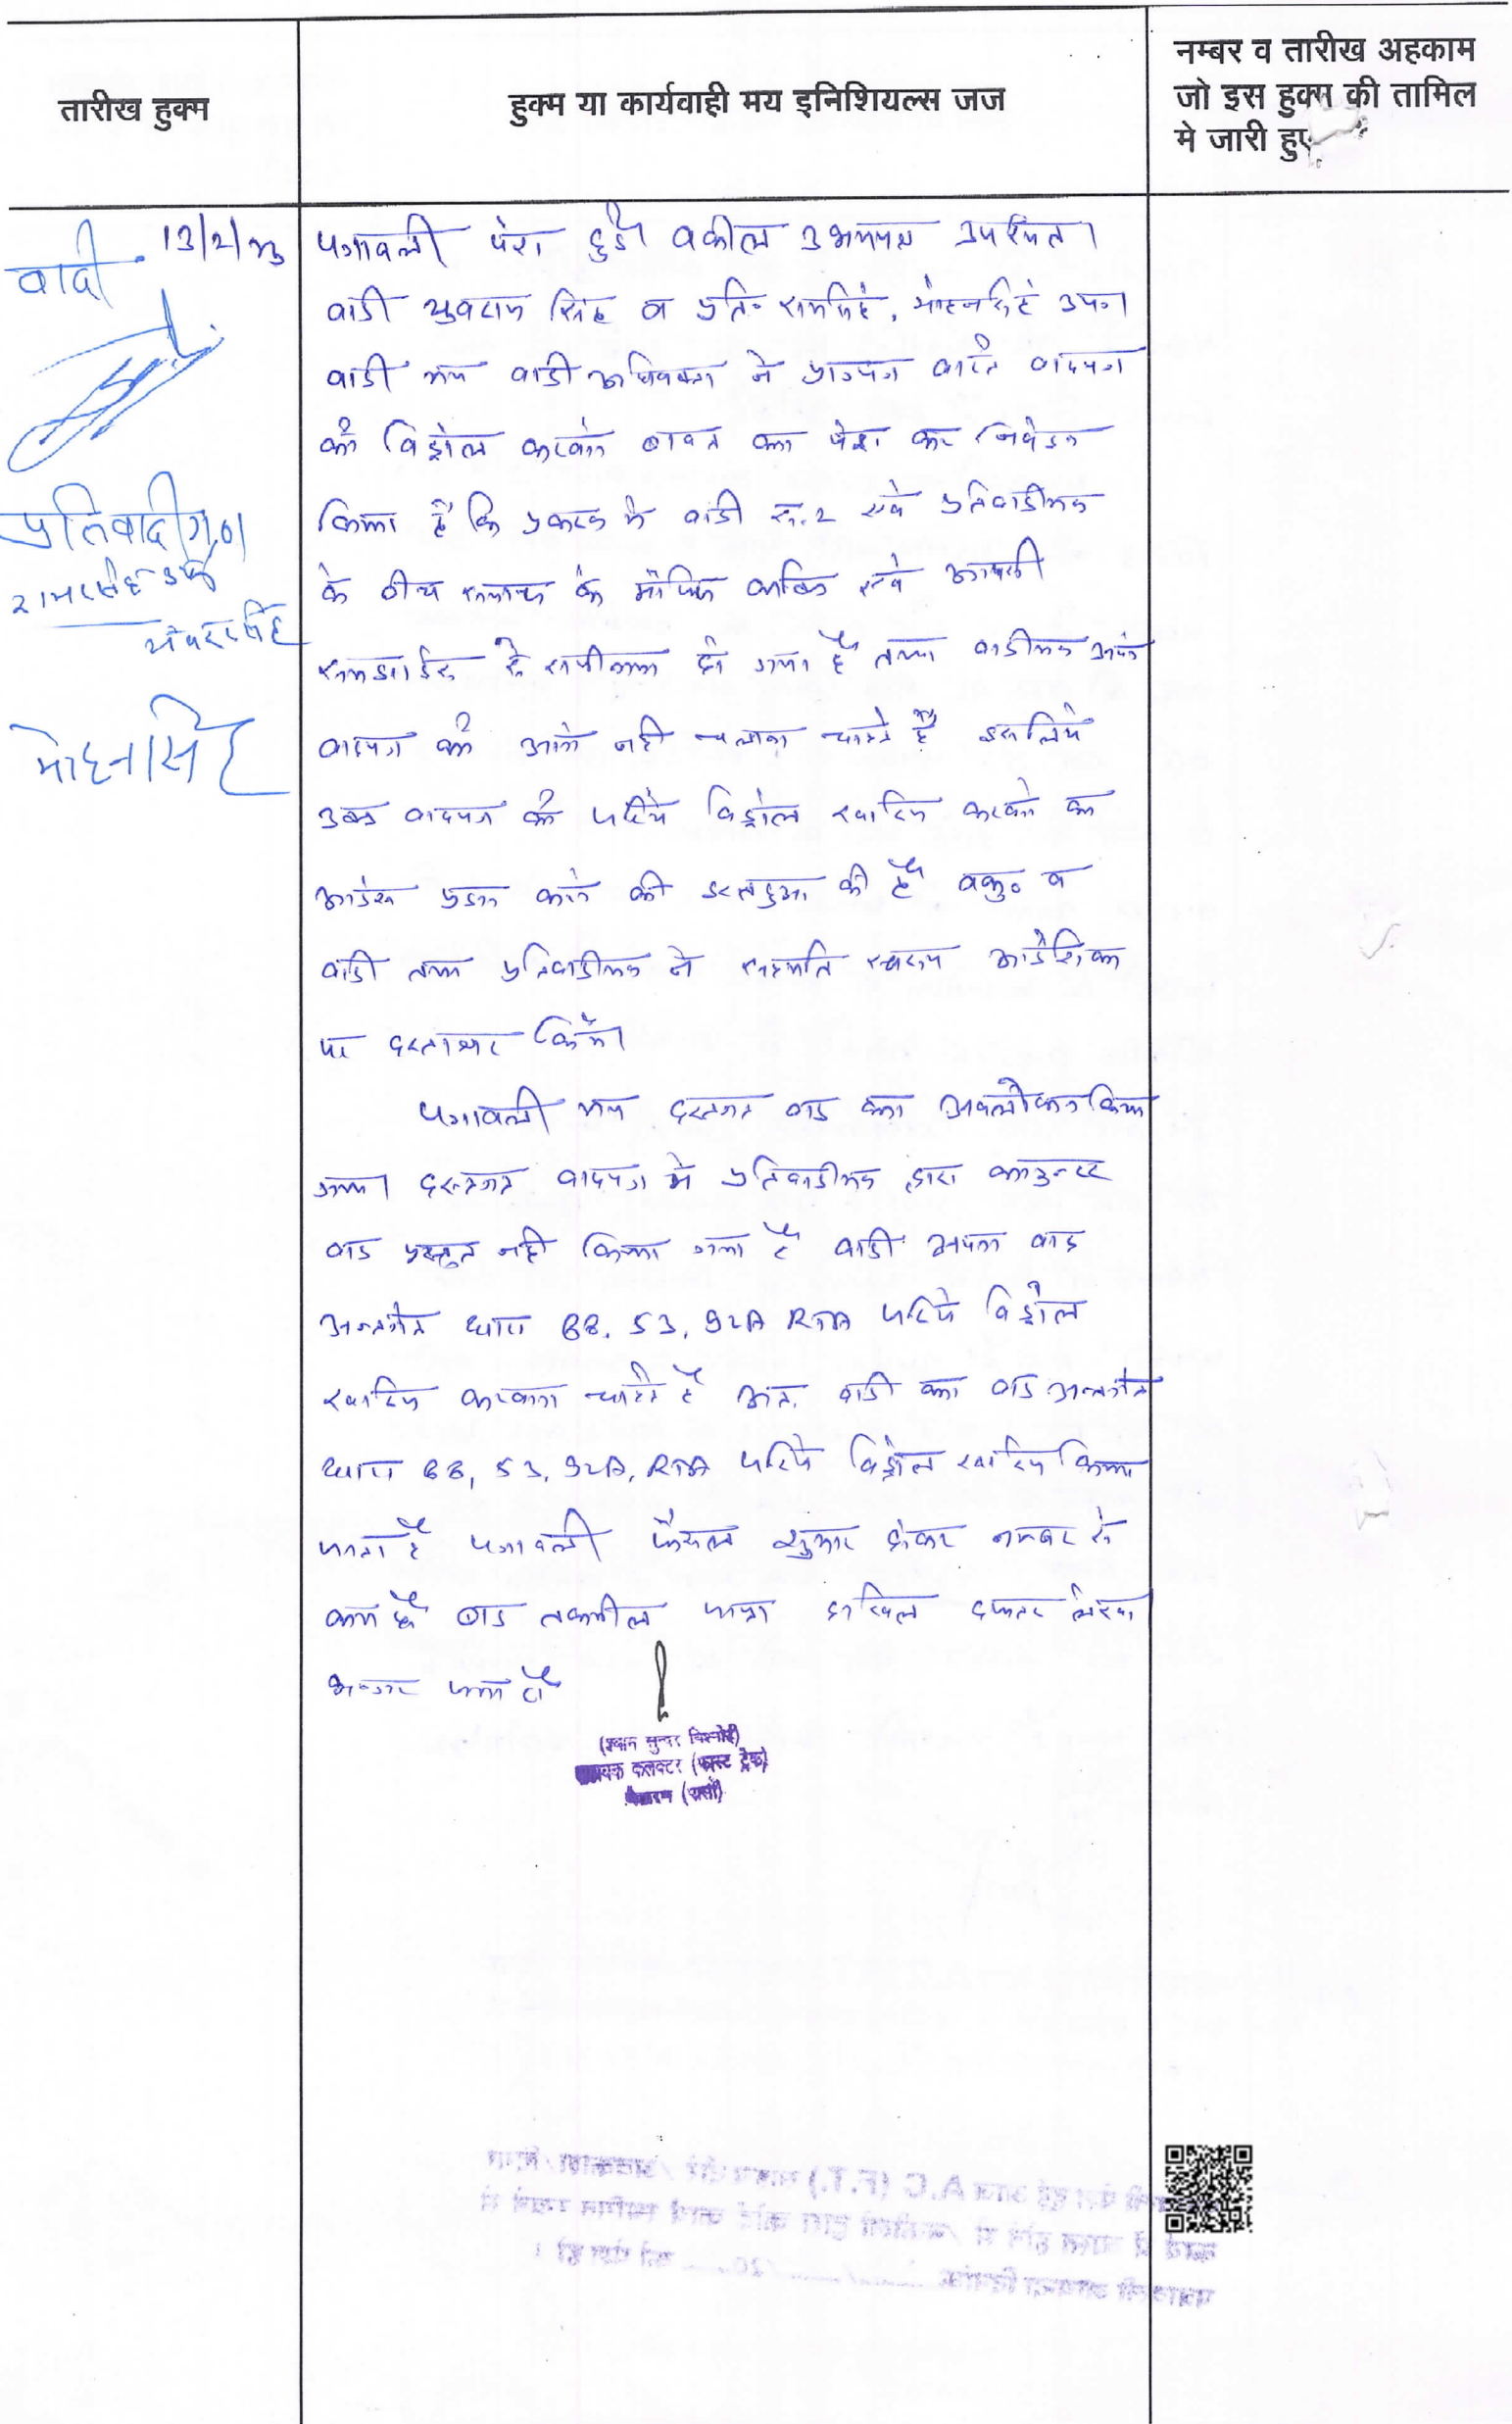 तारीख हुक्म
हुक्म या कार्यवाही मय इनिशियल्स जज
नम्बर व तारीख अहकाम
जो इस हुक्म की तामिल
मे जारी हुए
वादी
प्रतिवादीगण
रामसिंह उर्फ
भंवरसिंह
मोहनसिंह
13/2/23
पत्रावली पेश हुई वकील उभयपक्ष उपस्थित।
वादी युवराज सिंह व प्रति० रामसिंह, मोहनसिंह उप०।
वादी मय वादी अधिवक्ता ने प्रा०पत्र वास्ते वादपत्र
को विड्रोल करवाने बाबत का पेश कर निवेदन
किया है कि प्रकरण मे वादी सं.2 एवं प्रतिवादीगण
के बीच समाज के मौजिज व्यक्ति एवं आपसी
समझाईश से राजीनामा हो गया है तथा वादीगण अपने
वादपत्र को आगे नही चलाना चाहते है इसलिये
उक्त वादपत्र को जरिये विड्रोल खारिज करवाने का
आदेश प्रदान करने की इस्तदुआ की है वकु० व
वादी तथा प्रतिवादीगण ने सहमति स्वरूप आदेशिका
पर हस्ताक्षर किये।
पत्रावली मय हस्तगत वाद का अवलोकन किया
गया। हस्तगत वादपत्र मे प्रतिवादीगण द्वारा काउन्टर
वाद प्रस्तुत नही किया गया है वादी अपना वाद
अन्तर्गत धारा 88, 53, 92A RTA जरिये विड्रोल
खारिज करवाना चाहते है अतः वादी का वाद अन्तर्गत
धारा 88, 53, 92A, RTA जरिये विड्रोल खारिज किया
जाता है पत्रावली फैसल शुमार होकर नम्बर से
कम हो बाद तकमील जाप्ता दाखिल दफ्तर लेखा
भण्डार जमा हो
(श्याम सुन्दर विश्नोई)
सहायक कलक्टर (फास्ट ट्रेक)
(पाली)